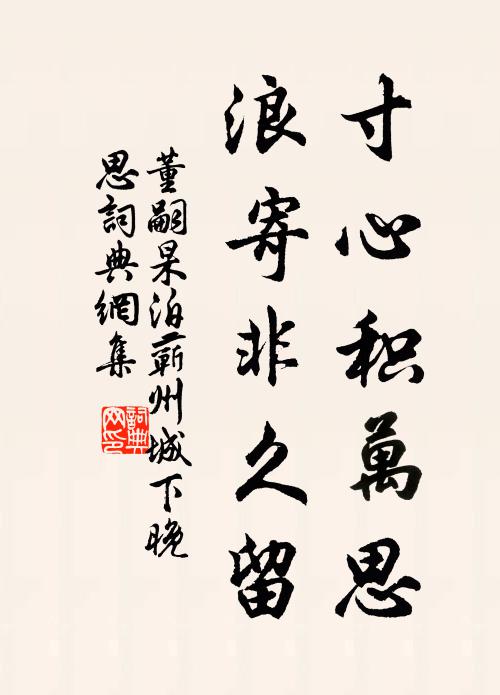 寸心积萬思
浪寄非久留
董嗣杲泊蘄州城下晚
思詞典網集
詞典
网印